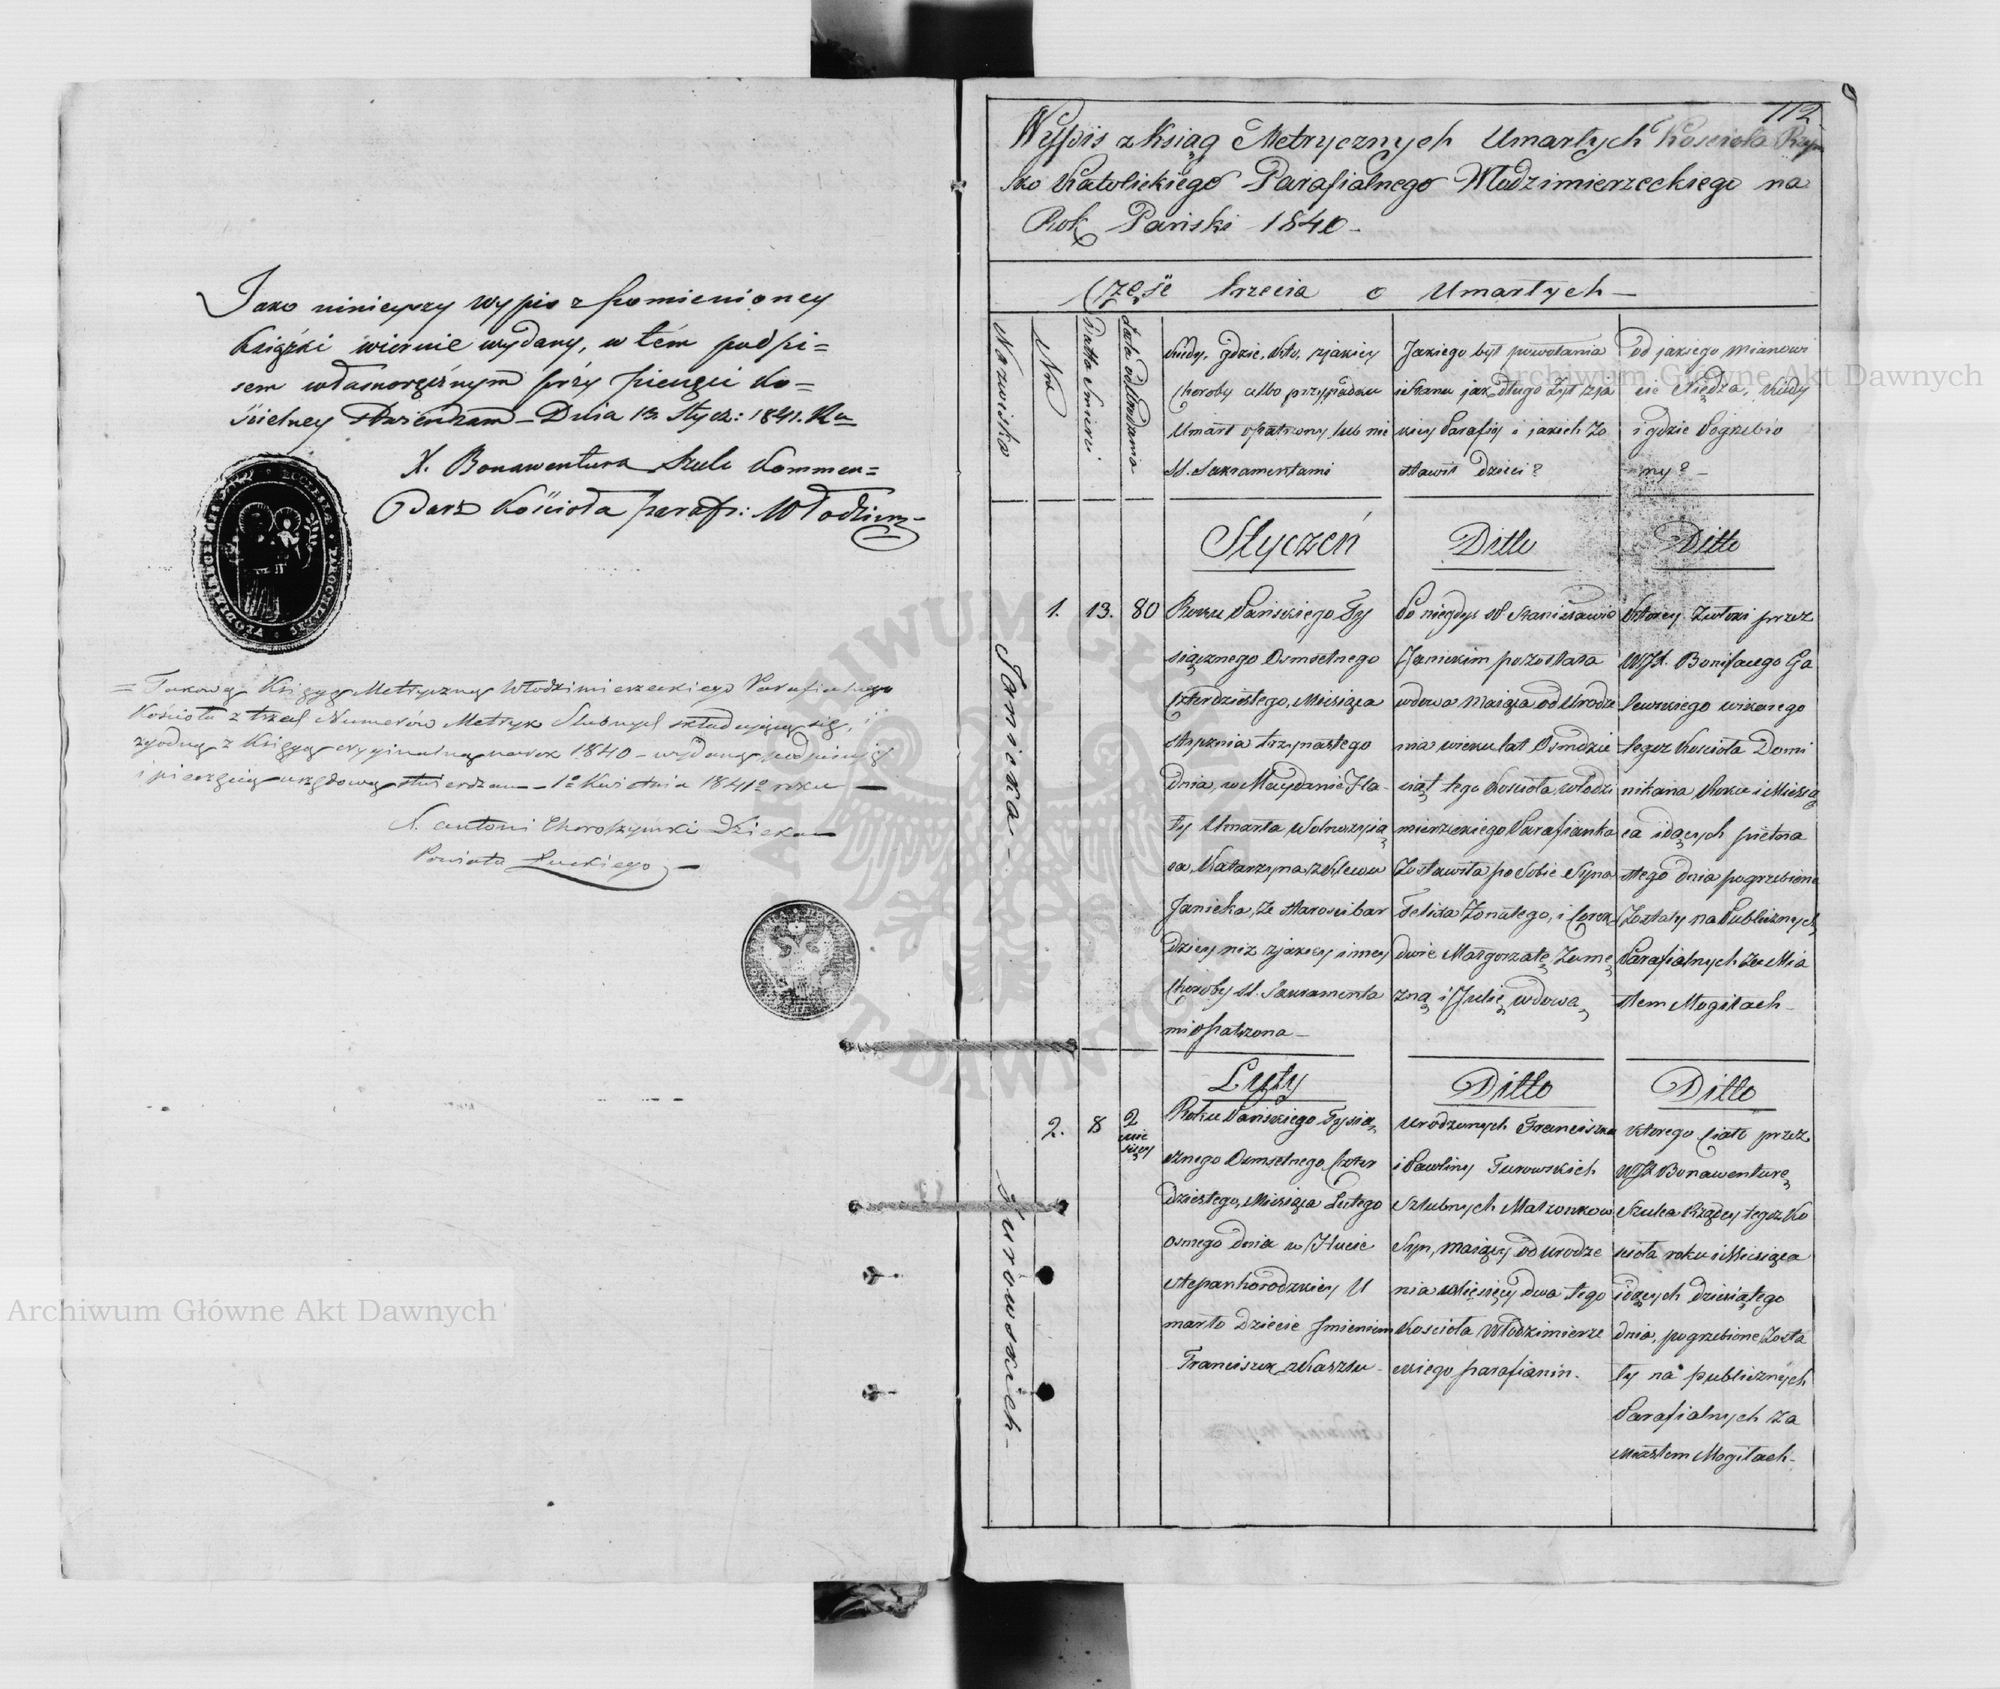 Jako ninieyszy wypis z pomienioney
Książki wiernie wydany, w tém podpi=
sem własnoręcznym przy pieczęci Ko=
ścielney stwierdzam – Dnia 13 Stycz: 1841. Ru
X. Bonawentura Szulc Kommen=
darz Kościoła paraf: Włodzim:
= Takową Księgę Metryczną Włodzimierzeckiego Parafialnego
Kościoła z trzech Numerów Metryk Slubnych składającą się,
zgodną z Księgą oryginalną na rok 1840 – wydaną podpisuję
i pieczęcią urzędową stwierdzam – 1º Kwietnia 1841º roku –
X. Antoni Choroszyński Dziekan
Powiatu Łuckiego –
112
Wypis z Ksiąg Metrycznych Umarłych Kościoła Rzym
sko Katolickiego Parafialnego Włodzimierzeckiego na
Rok Pański 1840 –
Część trzecia o Umarłych –
Nazwiska
Nro
Datta Śmierci
Lata od Urodzenia
Kiedy, gdzie, kto, z jakiey
choroby albo przypadku
Umarł opatrzony lub nie
SS. Sakramentami
Jakiego był powołania
i stanu jak długo żył z ja
kiey Parafij i jakich Zo
stawił dzieci?
od jakiego mianowi
cie Księdza, kiedy
i gdzie Pogrzebio
ny? –
Styczeń
Ditto
Ditto
Janicka –
1.
13.
80
Roku Pańskiego Ty
siącznego Osmsetnego
Czterdziestego, Miesiąca
stycznia trzynastego
dnia, w Maydanie Hu-
ty Umarła Wolnożyją
ca, Katarzyna, z Chlewu
Janicka, Ze starości bar
dziey niż z jakiey inney
Choroby SS. Sakramenta
mi opatrzona –
Po niegdyś W Stanisławie
Janickim pozostała
wdowa maiąca od Urodze
nia wieku lat Osmdzie
siąt tego Kościoła, włodzi
mierzeckiego Parafianka
Zostawiła po Sobie Syna
Felixa Żonatego, i Corek
dwie Małgorzatę Zamę
żną i Julię wdową
Ktorey Zwłoki przez
WJX. Bonifacego Ga
lewskiego wikarego
tegoż Kościoła Domi
nikana, Roku i Miesią
ca idących pietna
stego dnia pogrzebione
Zostały na Publicznych
Parafialnych Za Mia
stem Mogiłach –
Luty
Ditto
Ditto
Turowskich –
2.
8
2
mie
sięcy
Roku Pańskiego Tysią
cznego Osmsetnego Czter
dziestego, Miesiąca Lutego
osmego dnia w Hucie
stepanhorodzkiey U
marło Dziecie Jmieniem
Franciszek
Urodzonych Franciszka
i Pawliny Turowskich
Szlubnych Małżonkow
Syn, maiący od urodze
nia miesięcy dwa tego
Kościoła Włodzimierze
ckiego parafianin –
Ktorego Ciało przez
WJX Bonawenturę
Szulca Rządcy tegoż Ko
ścioła roku i Miesiąca
idących dziesiątego
dnia, pogrzebione Zosta
ły na publicznych
Parafialnych Za
Miastem Mogiłach –
Archiwum Główne Akt Dawnych
Archiwum Główne Akt Dawnych